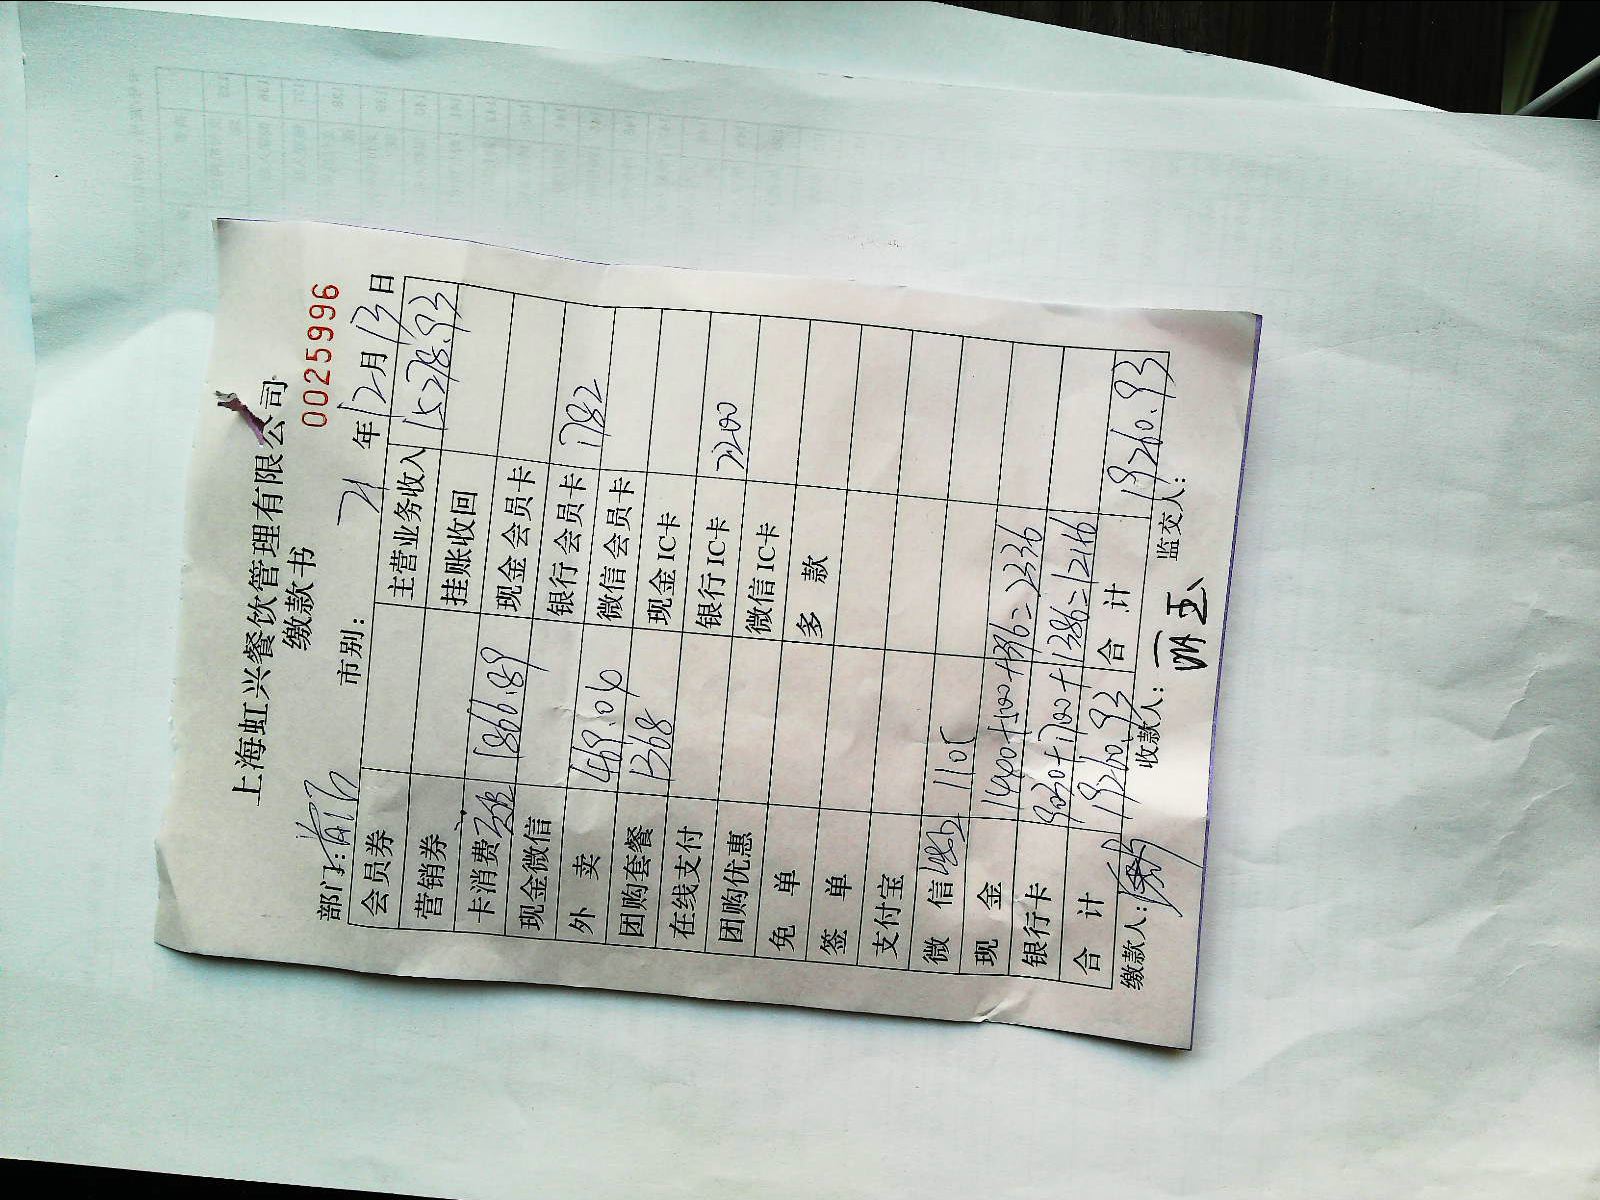 上海虹兴餐饮管理有限公司
缴款书
0025996
部门: 市别: 21 年 12 月 13 日
会员券 主营业务收入 15278.93
营销券 挂账收回
卡消费 1866.89 现金会员卡
现金微信 银行会员卡 1782
外 卖 469.04 微信会员卡
团购套餐 1368 现金IC卡
在线支付 银行IC卡 2200
团购优惠 微信IC卡
免 单 多 款
签 单
支付宝
微 信 1105
现 金 1440+500+396=2336
银行卡 9030+1700+1386=12116
合 计 19260.93 合 计 19260.93
缴款人: 收款人: 监交人: